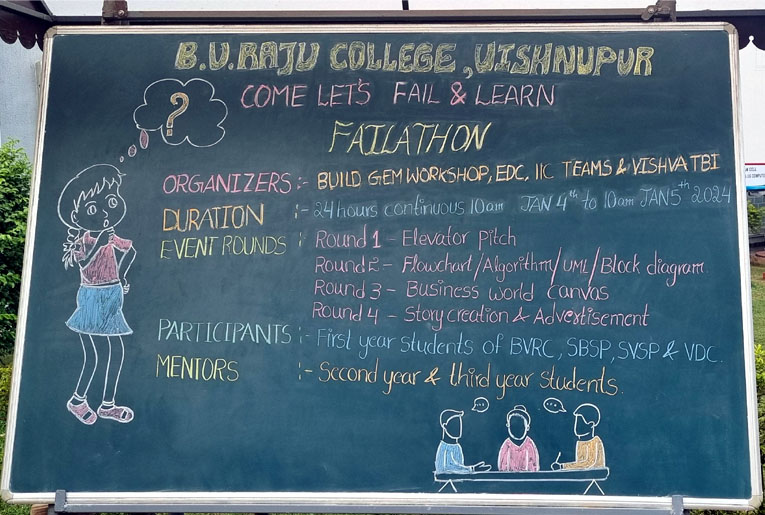 B.V.RAJU COLLEGE, VISHNUPUR
COME LET'S FAIL & LEARN
?
FAILATHON
ORGANIZERS :- BUILD GEM WORKSHOP, EDC, IIC TEAMS & VISHVA TBI
DURATION :- 24 hours continuous 10am JAN 4th to 10am JAN 5th 2024
EVENT ROUNDS : Round 1 - Elevator pitch
Round 2 - Flowchart/Algorithm/UML/Block diagram
Round 3 - Business world Canvas
Round 4 - Story creation & Advertisement
PARTICIPANTS :- First year students of BVRC, SBSP, SVSP & VDC.
MENTORS :- Second year & third year students.